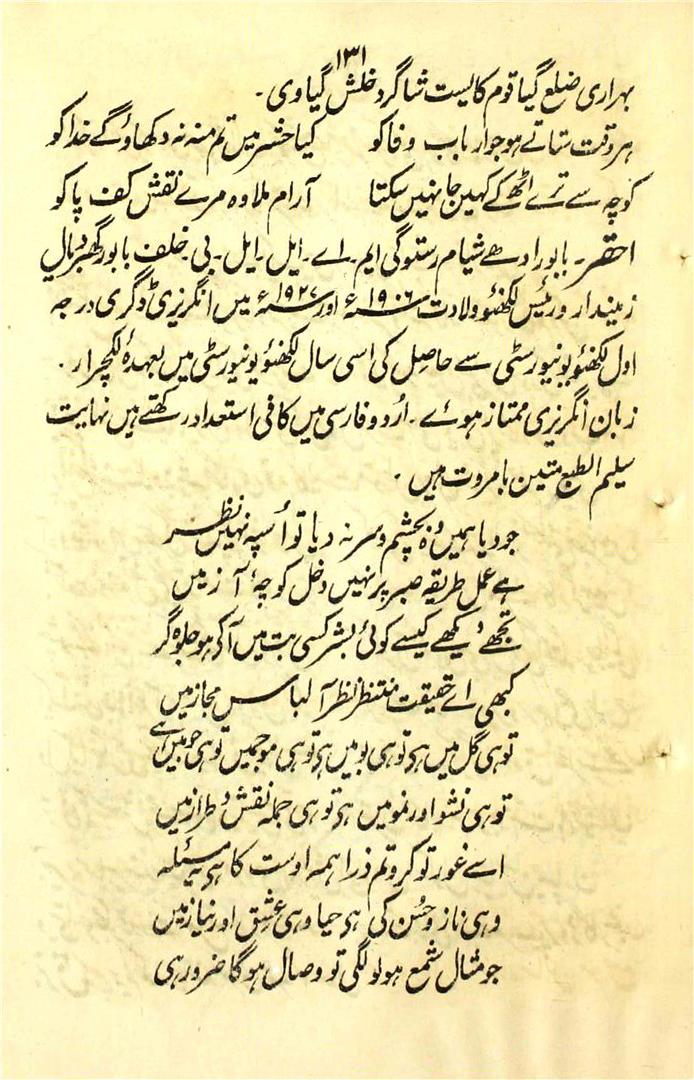 ۱۳۱
بہراری ضلع گیا قوم کایست شاگرد خلش گیاوی۔
ہر وقت ستاتے ہو جو ارباب وفا کو کیا حشر میں تم منہ نہ دکھاؤ گے خدا کو
کوچہ سے ترے اٹھ کے کہیں جا نہیں سکتا آرام ملا وہ مرے نقش کف پا کو
احقر۔ بابو رادھے شیام رستوگی ایم۔ اے۔ ایل۔ ایل۔ بی۔ خلف بابو رگھبر دیال
زمیندار و رئیس لکھنؤ ولادت سنہ ۱۹۰۶ء اور سنہ ۱۹۲۷ء میں انگریزی ڈگری درجہ
اول لکھنؤ یونیورسٹی سے حاصل کی اسی سال لکھنؤ یونیورسٹی میں بعہدۂ لکچرار۔
زبان انگریزی ممتاز ہوئے۔ اردو فارسی میں کافی استعداد رکھتے ہیں نہایت
سلیم الطبع متین بامروت ہیں۔
جو دیا ہمیں وہ بچشم و سر نہ دیا تو اُسپہ نہیں نظر
ہے عمل طریقہ صبر پر نہیں دخل کوچۂ آز میں
تجھے دیکھے کیسے کوئی بشر کسی بت میں آ کے ہو جلوہ گر
کبھی اے حقیقت منتظر نظر آ لباس مجاز میں
توہی گل میں ہی توہی بو میں ہی توہی موجمیں توہی جو میں ہے
توہی نشو اور نمو میں ہی توہی جملہ نقش و طراز میں
اسے غور تو کرو تم ذرا ہمہ اوست کا ہی یہ مسئلہ
وہی ناز و حسن کی ہی حیا وہی عشق اور نیاز میں
جو مثال شمع ہو لو لگی تو وصال ہوگا ضرور ہی